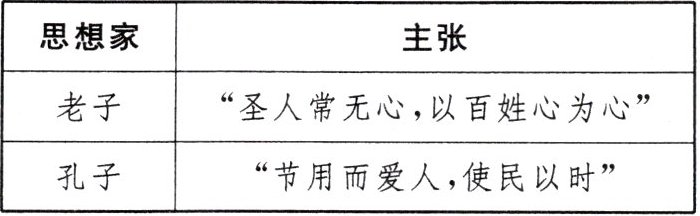 思想家 主张
老子 “圣人常无心,以百姓心为心”
孔子 “节用而爱人,使民以时”